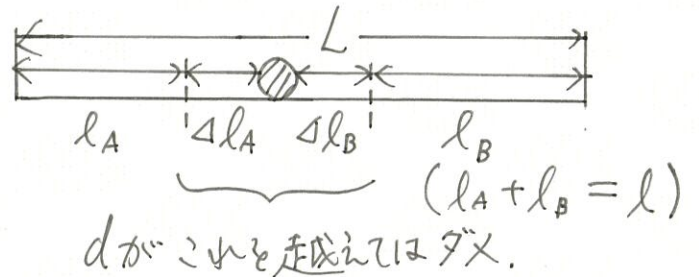 L
lA ΔlA ΔlB lB
(lA + lB = l)
dがこれを越えてはダメ.